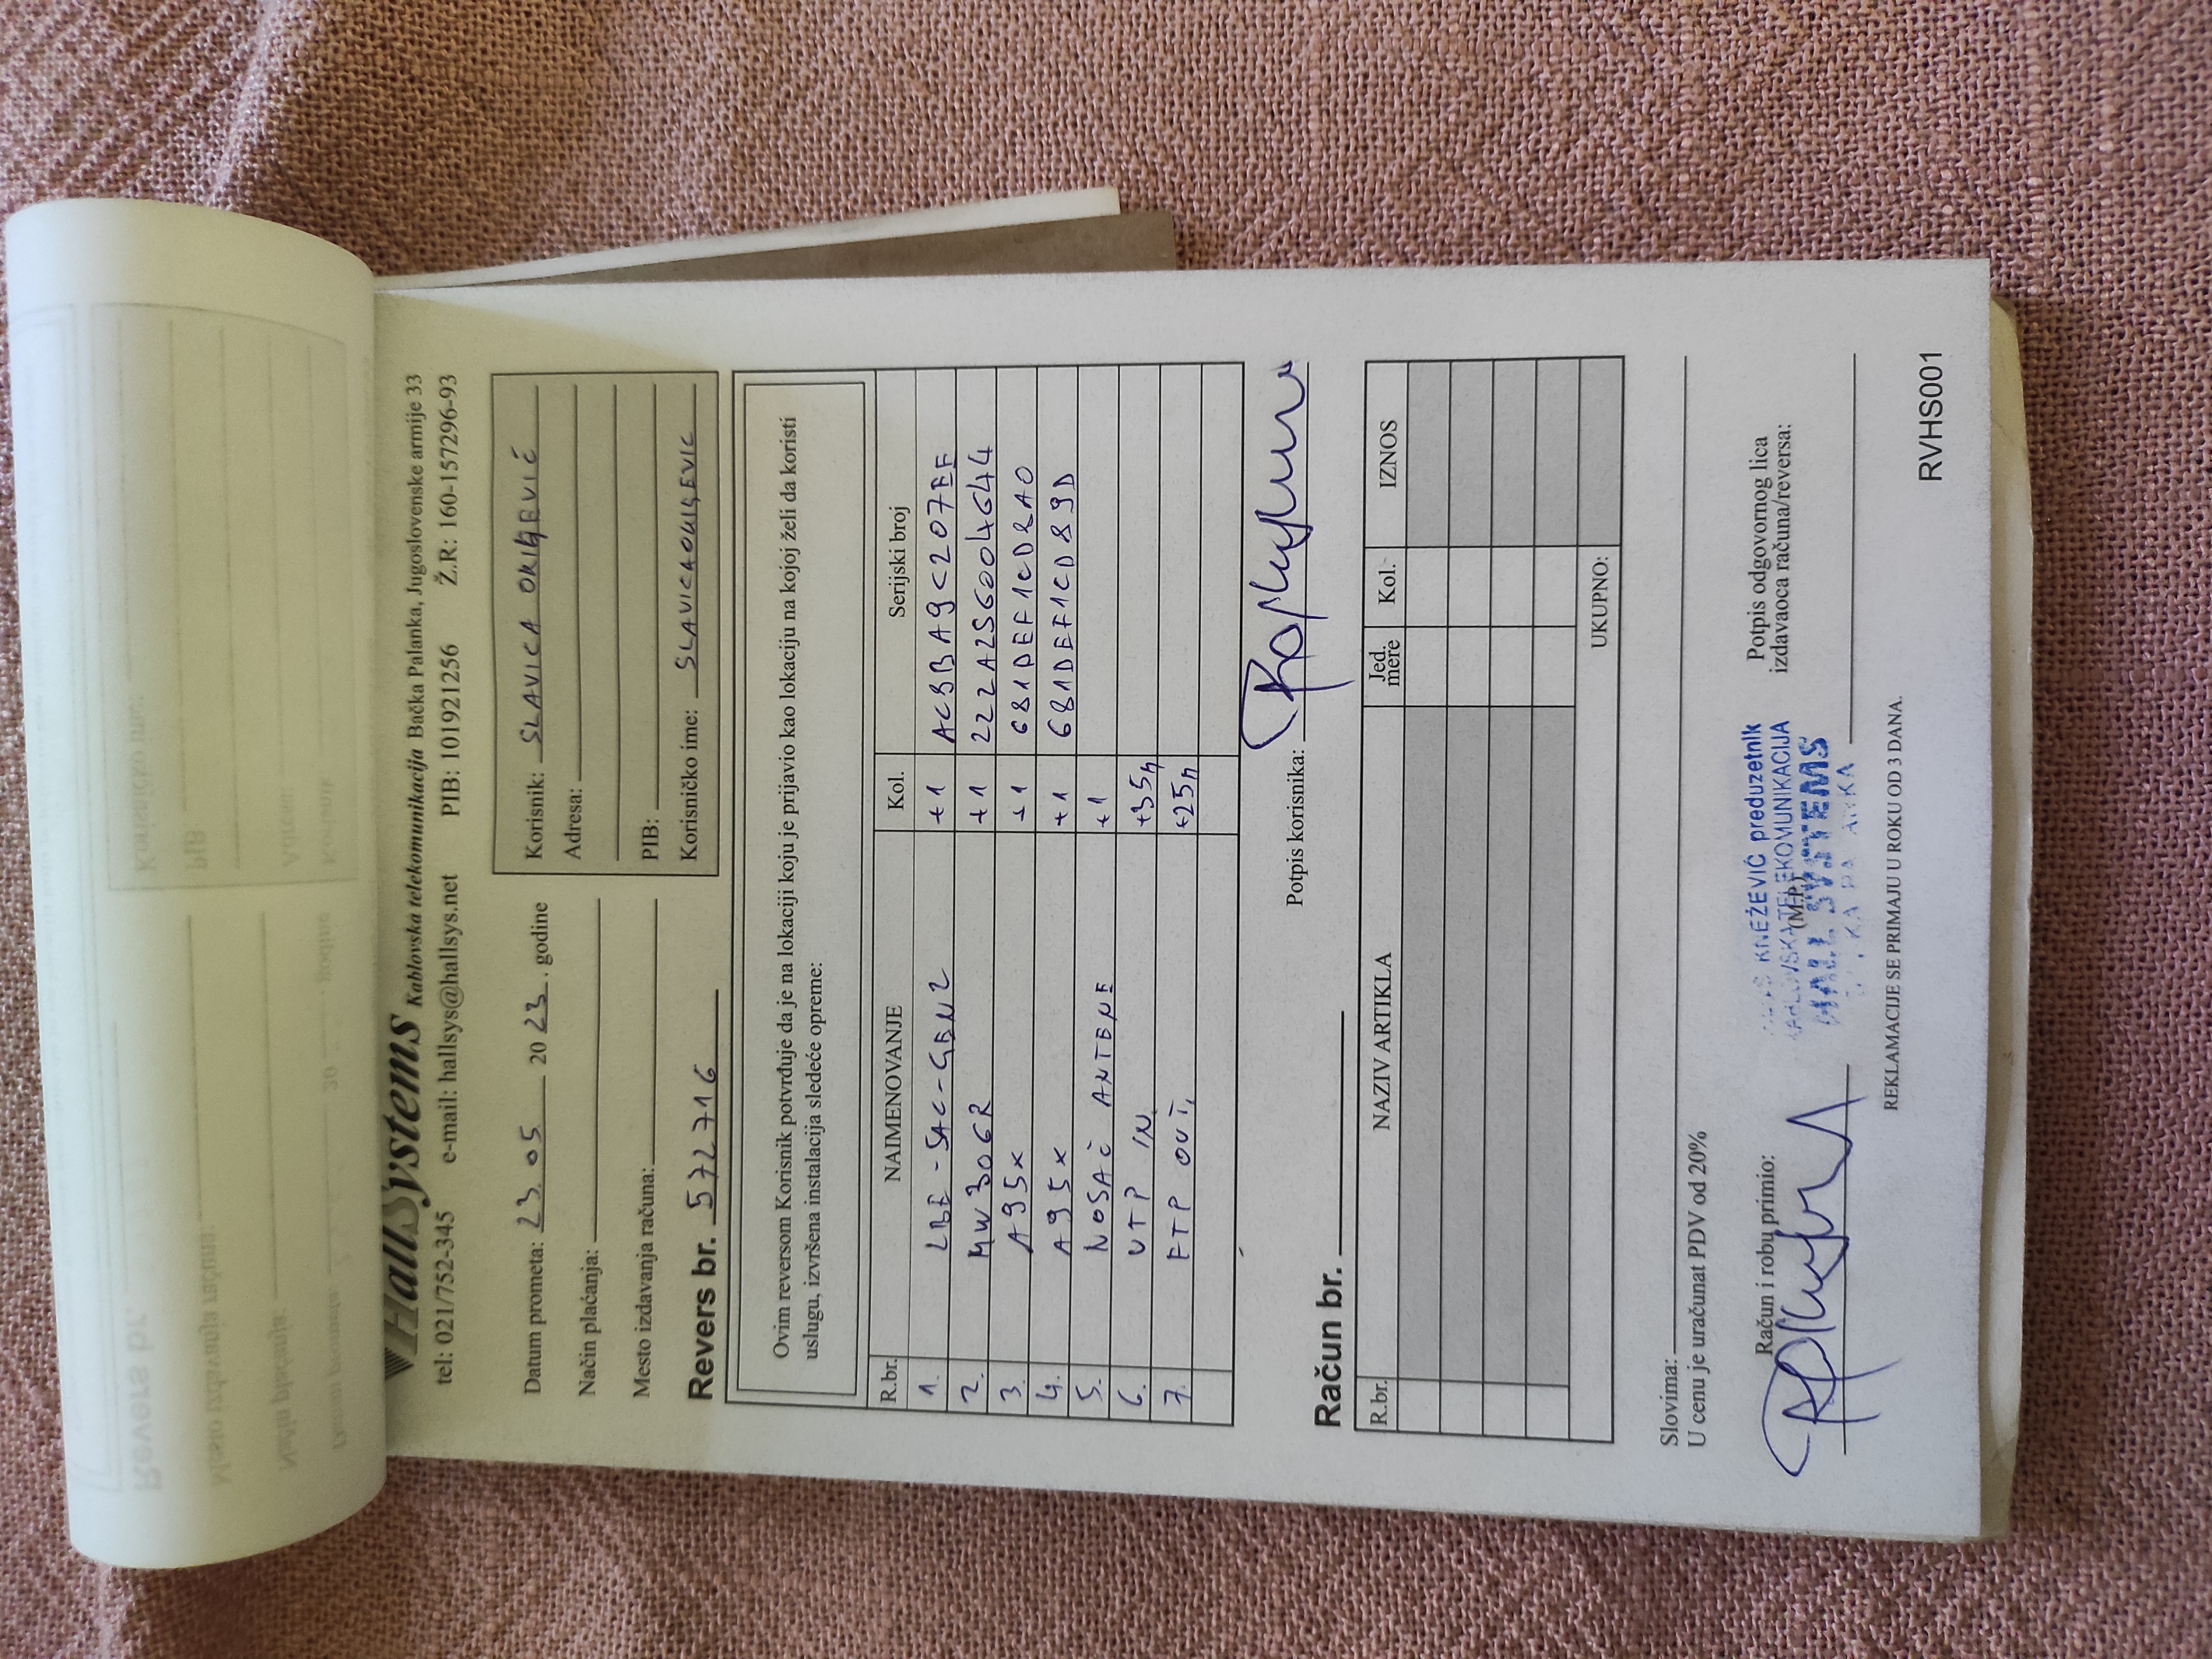 HallSystems Kablovska telekomunikacija Bačka Palanka, Jugoslovenske armije 33
tel: 021/752-345 e-mail: hallsys@hallsys.net PIB: 101921256 Ž.R: 160-157296-93
Datum prometa: 23.05 2023. godine
Način plaćanja:
Mesto izdavanja računa:
Korisnik: SLAVICA
Adresa:
PIB:
Korisničko ime:
Revers br. 572716
Ovim reversom Korisnik potvrđuje da je na lokaciji koju je prijavio kao lokaciju na kojoj želi da koristi
uslugu, izvršena instalacija sledeće opreme:
R.br. NAIMENOVANJE Kol. Serijski broj
1. LBE-5AC-GEN2 +1 AC8BA9C207EE
2. MW306R +1 222A2S6004644
3. A95X +1 681DEF1CD8A0
4. A95X +1 681DEF1CD89D
5. NOSAČ ANTENE +1
6. UTP IN +35m
7. FTP OUT +25m
Potpis korisnika:
Račun br.
R.br. NAZIV ARTIKLA Jed. mere Kol. IZNOS
UKUPNO:
Slovima:
U cenu je uračunat PDV od 20%
Račun i robu primio:
KNEŽEVIĆ preduzetnik
KABLOVSKA TELEKOMUNIKACIJA
(M.P.)
HALL SYSTEMS
Potpis odgovornog lica
izdavaoca računa/reversa:
REKLAMACIJE SE PRIMAJU U ROKU OD 3 DANA.
RVHS001